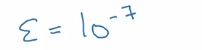 ε = 10⁻⁷